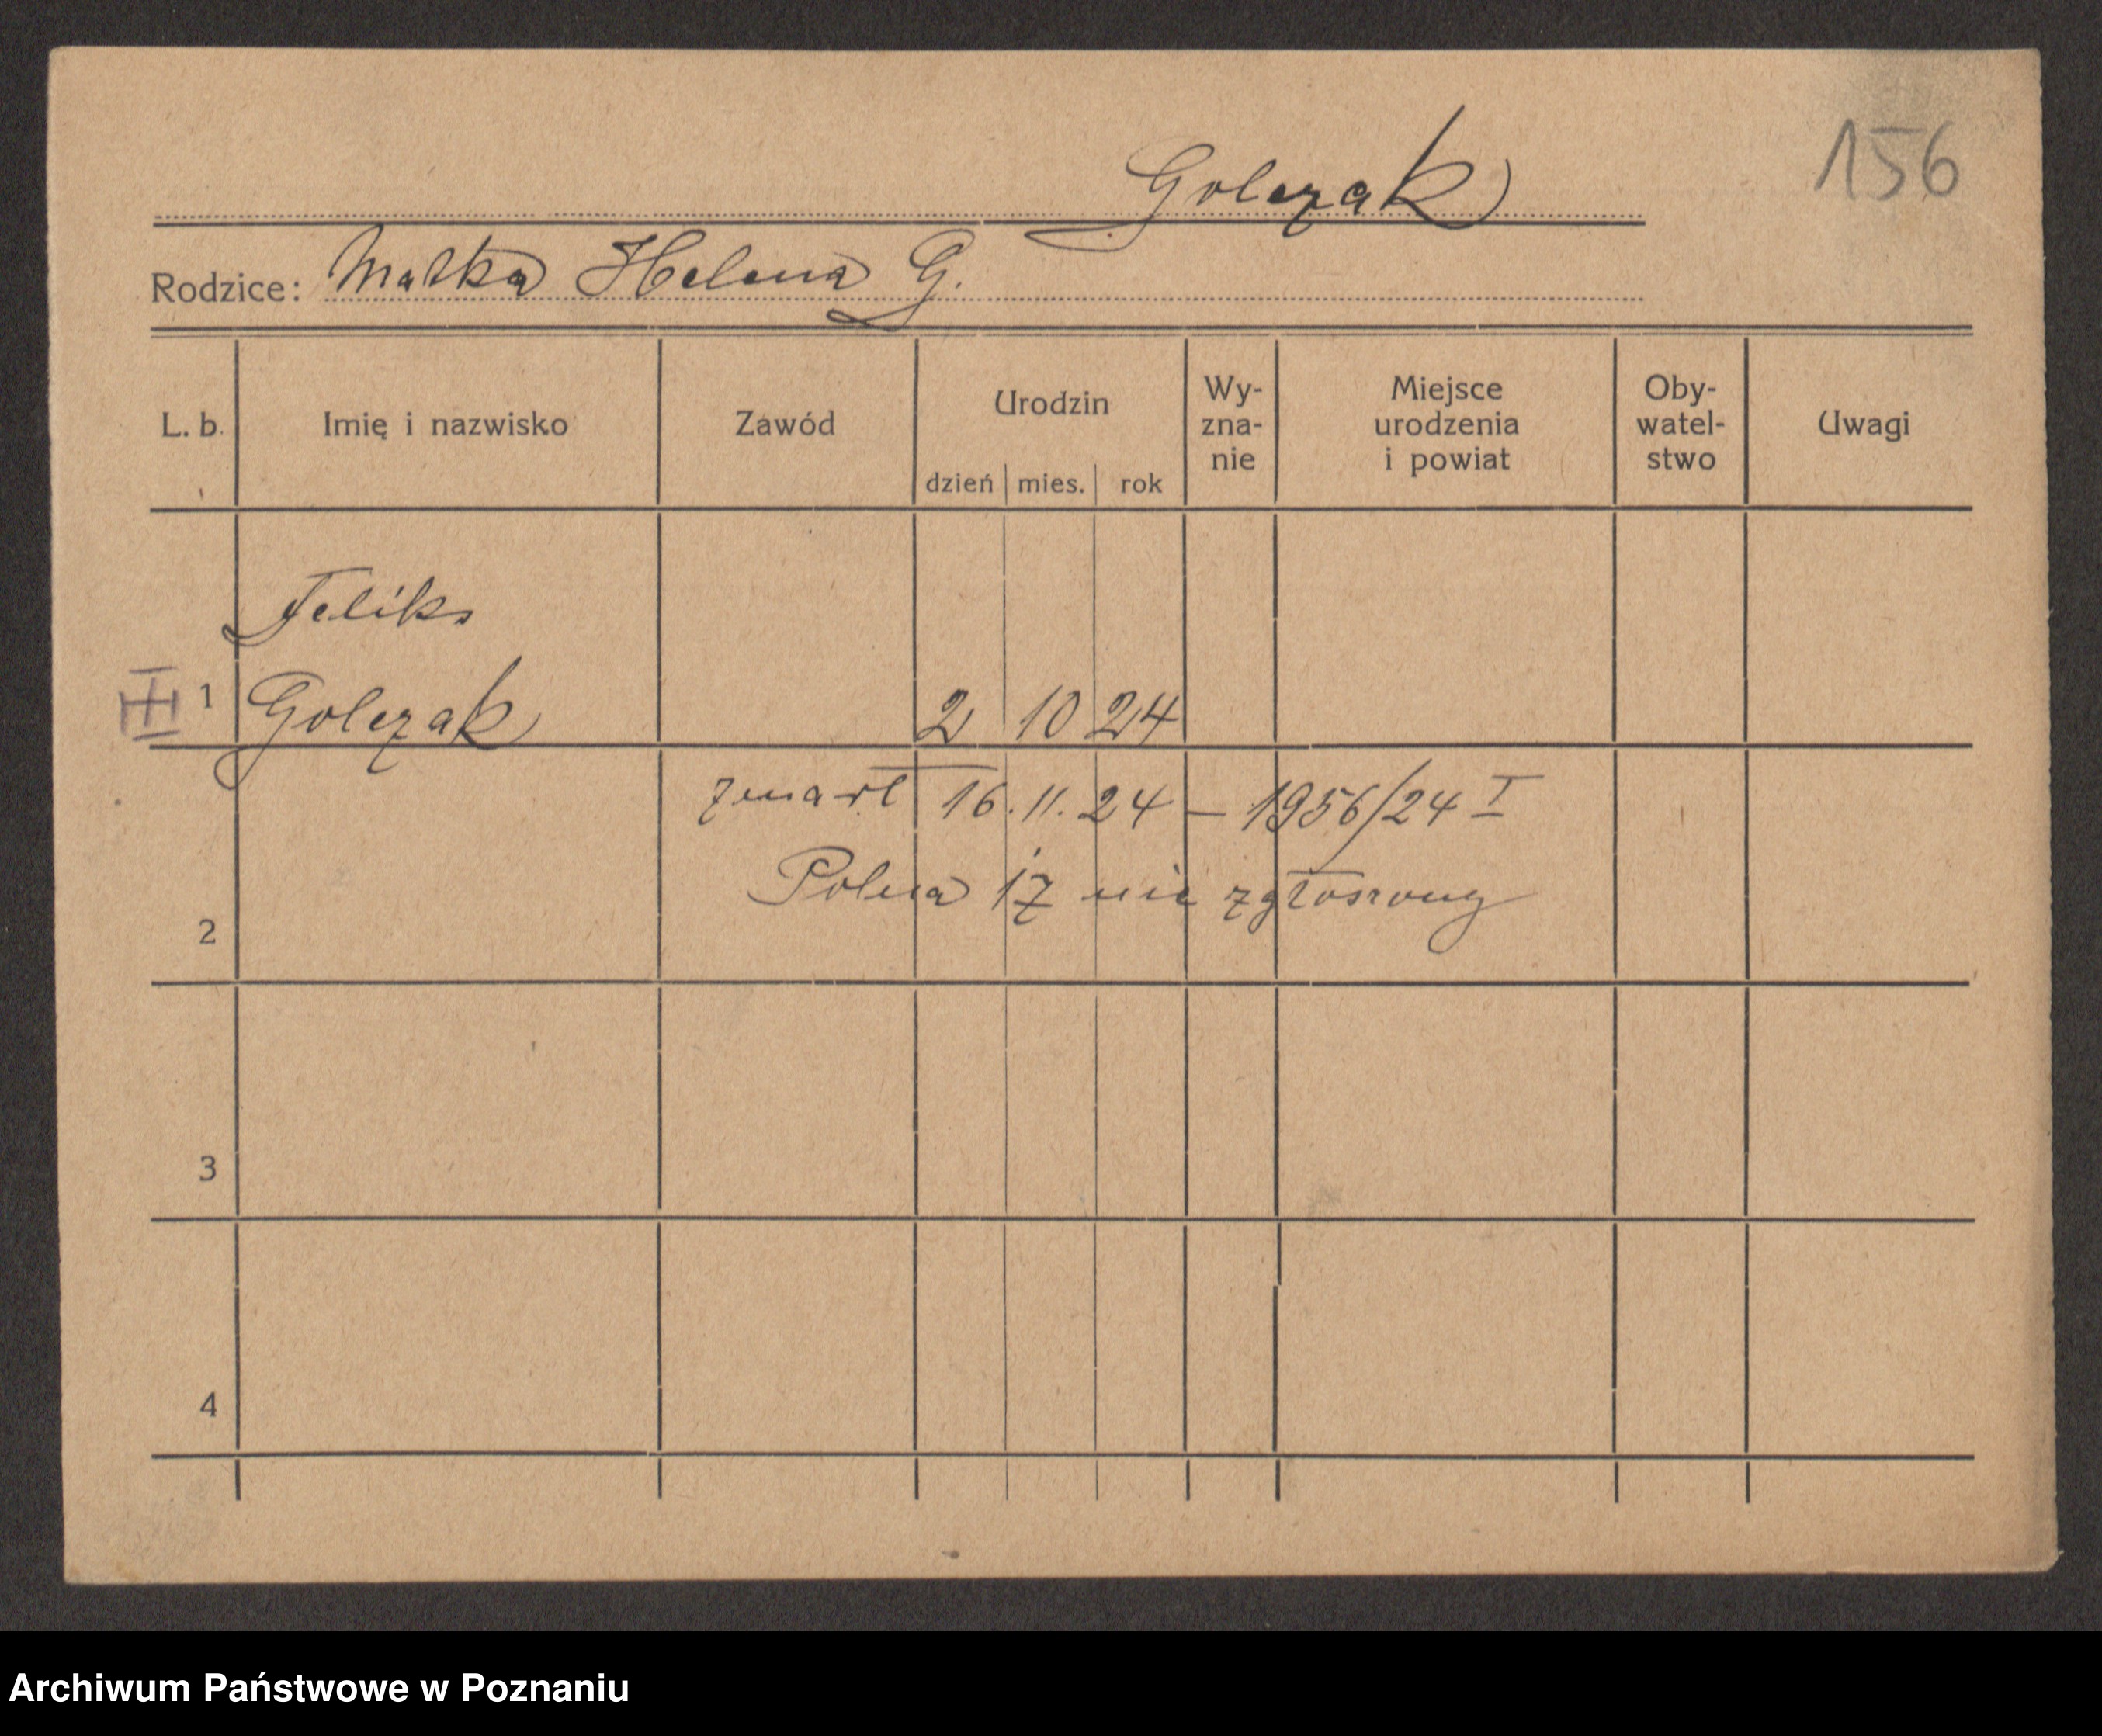 156
Golczak
Rodzice: Matka Helena G.
L. b. Imię i nazwisko Zawód Urodzin dzień mies. rok Wy-zna-nie Miejsce urodzenia i powiat Oby-watel-stwo Uwagi
Feliks
1 Golczak 2 10 24
zmarł 16.11.24 – 1956/24 I
Polna 17 nie zgłoszony
2
3
4
Archiwum Państwowe w Poznaniu